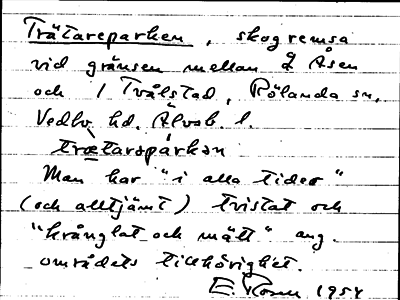 Trätareparken, skogremsa
vid gränsen mellan 2 Åsen
och 1 Tvålstad, Rölanda sn,
Vedbo hd. Älvsb. l.
trætaraspárkən
Man har "i alla tider"
(och alltjämt) tvistat och
"krånglat och mätt" ang.
områdets tillhörighet.
E 1954